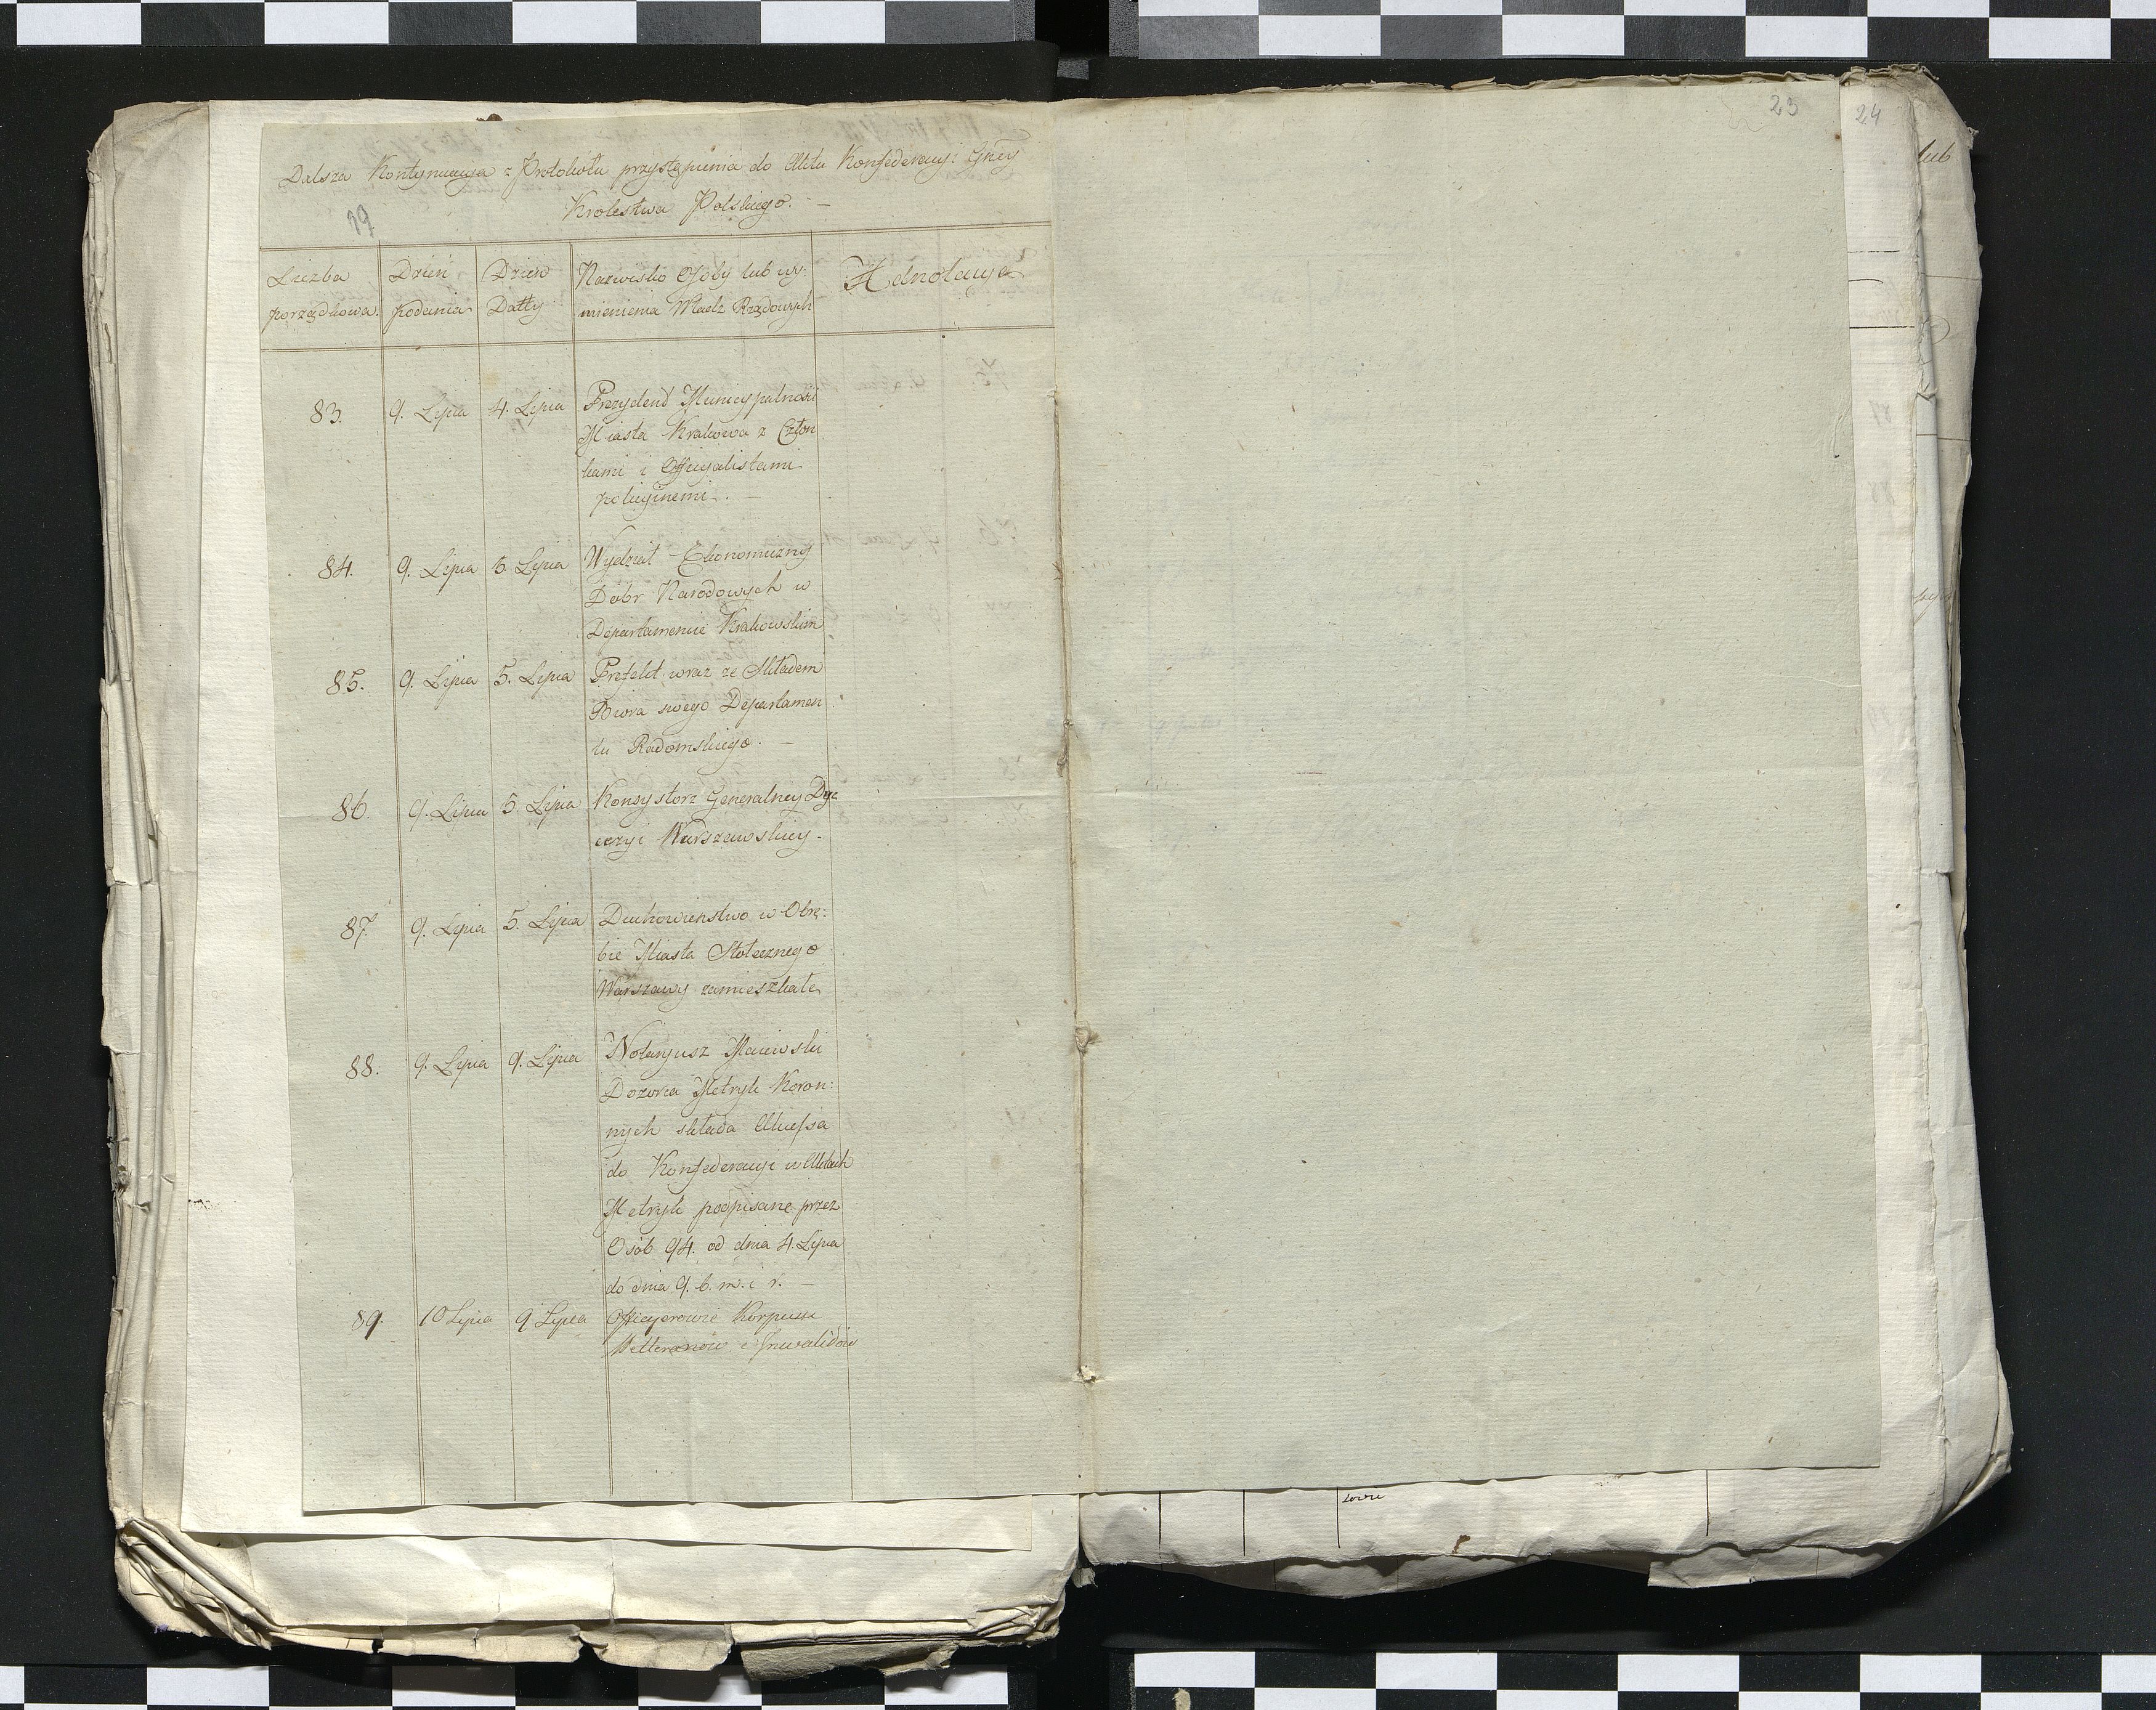 23
24
lub
Dalsza Kontynuacya z Protokułu przystąpienia do Aktu Konfederacyi Gney
Krolestwa Polskiego. —
Liczba porządkowa.
Dzień podania
Dzień Datty
Nazwisko Osoby lub wy: mienienia Władz Rządowych
Adnotacya
83. 9. Lipca 4. Lipca Prezydent Municypalności
Miasta Krakowa z Człon
kami i Officyalistami
policyinemi. —
84. 9. Lipca 5. Lipca Wydział Ekonomiczny
Dóbr Narodowych w
Departamencie Krakowskim
85. 9. Lipca 5. Lipca Prefekt wraz ze Składem
Biora swego Departamen
tu Radomskiego. —
86. 9. Lipca 5. Lipca Konsystorz Generalney Dye
cezyi Warszawskiey.
87. 9. Lipca 5. Lipca Duchowieństwo w Obrę:
bie Miasta Stołecznego
Warszawy zamieszkałe
88. 9. Lipca 9. Lipca Notaryusz Maiewski
Dozorca Metryk Koron:
nych składa Akcessa
do Konfederacyi w Aktach
Metryk podpisane przez
Osób 94. od dnia 4. Lipca
do dnia 9. b. m. i r. —
89. 10 Lipca 9 Lipca Officyerowie Korpusu
Wetteranów i Inwalidów